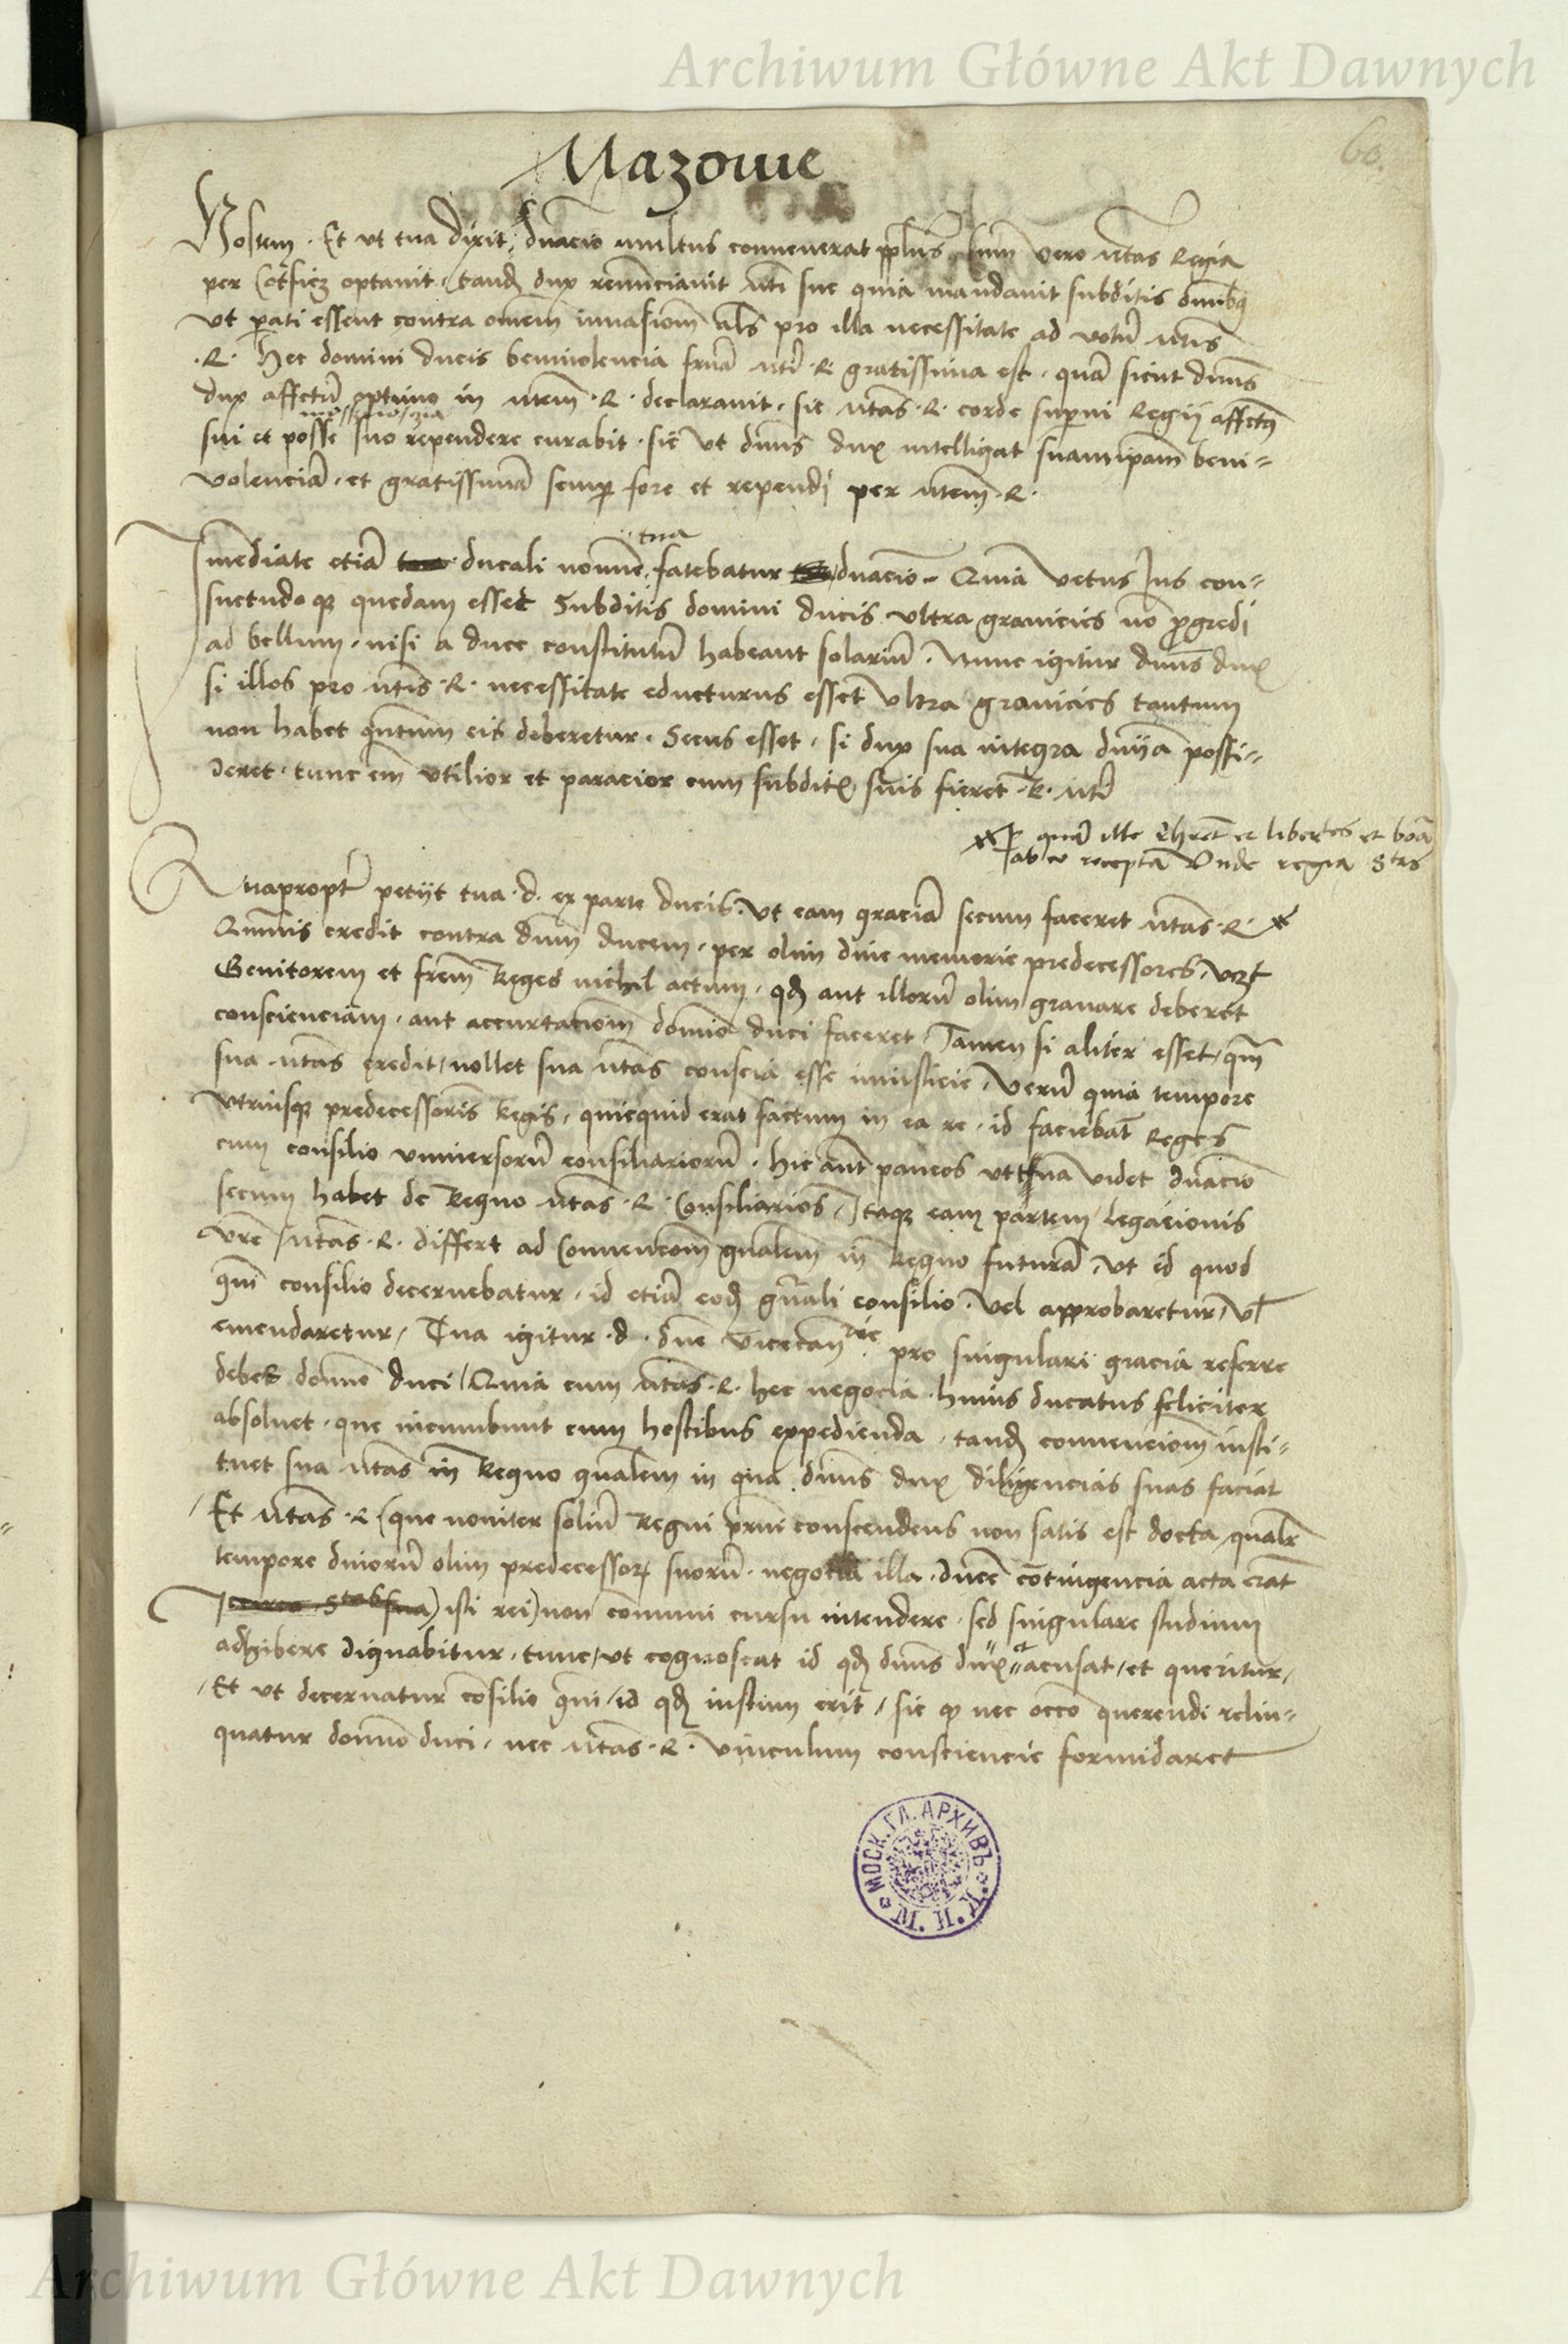 Archiwum Główne Akt Dawnych
60.
Mazouie
Hostem. Et ut tua dixit dnacio multus convenerat pplus. Cum vero mtas Regia
per optavit. tand dux renunciavit mti sue quia mandavit subditis omibq
Ut pati essent contra omem invasiom als pro illa necessitate ad votu mtis
.R. Hec domini ducis benivolencia mti .R. gratissima est. qua sicut dnus
dux affectu optimo in mtem .R. declaravit. sic mtas .R. corde Regii affectus
sui et posse suo rependere curabit. sic ut dnus dux intelligat beni=
volencia. et gratissima semp fore et rependi per mtem .R.
Imediate etia ducali nomine tua fatebatur dnacio. Quia vetus Ius con=
suetudoq quedam esset Subditis domini ducis ultra granicies no pgredi
ad bellum. nisi a duce constitutu habeant solariu. Nunc igitur dnus dux
si illos pro mtis .R. necessitate educturus esset Ultra granicies tantum
non habet qntum eis deberetur. Secus esset. si dux sua integra dnia possi=
deret. tunc em utilior et paracior cum subditis suis fieret .R. mti
qua ille et libertes et boa
ab eo recepta Unde regia Stas
Quapropt petiit tua .d. ex parte ducis. Ut eam gracia secum faceret mtas .R.
Quavis credit contra dnm ducem. per olim dive memorie predecessores, vez
Genitorem et frem Reges nichil actum. qd aut illoru olim gravare deberet
conscienciam. aut accurtaciom domino duci faceret. Tamen si aliter esset, qm
sua mtas credit, nollet sua mtas conscia esse iniusticie. Veru quia tempore
utriusq predecessoris Regis. quicquid erat factum in ea re. id faciebat Reges
cum consilio universoru consiliarioru. hic aut paucos ut tua videt dnacio
secum habet de Regno mtas .R. Consiliarios, Itaq eam partem Legacionis
vre mtas .R. differt ad Convenciom gnalem in Regno futura. ut id quod
gni consilio decernebatur. id etia eod gnali consilio. vel approbaretur, vl
emendaretur, Tua igitur .d. dne vicecan rie pro singulari gracia referre
debet domino duci, Quia cum mtas .R. hec negocia huius ducatus feliciter
absolvet. que incumbunt cum hostibus expedienda. tand convenciom insti=
tuet sua mtas in Regno gnalem in qua dnus dux diligencias suas faciat
Et mtas .R. (que noviter soliu Regni prmi conscendens non satis est docta, qualr
tempore dnioru olim predecessor suoru. negocia illa ducem contingencia acta erat
isti rei) non comuni cursu intendere. sed singulare studium
adhibere dignabitur. tunc, ut cognoscat id qd dnus dux acusat, et queritur,
Et ut decernatur consilio gni, id qd iustum erit, sic q nec occo querendi relin=
quatur domino duci. nec mtas .R. vinculum consciencie formidaret
МОСК. ГЛ. АРХИВЪ М. И. Д.
Archiwum Główne Akt Dawnych